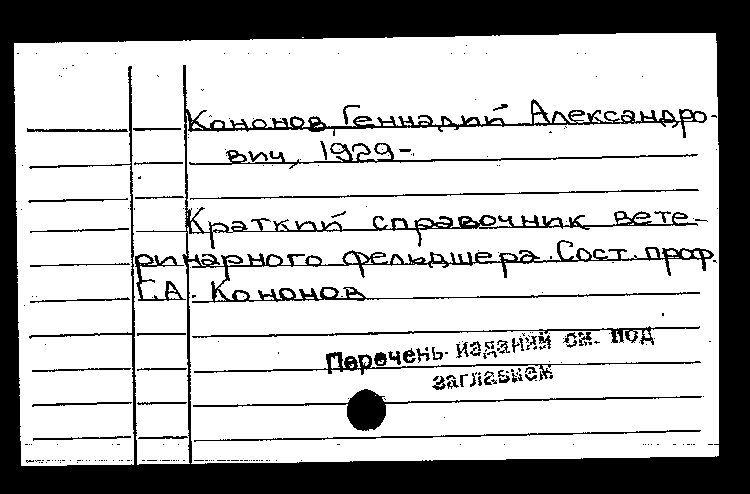 Кононов, Геннадий Александро-
вич, 1929-
Краткий справочник вете-
ринарного фельдшера. Сост. проф.
Г.А. Кононов
Перечень изданий см. под
заглавием